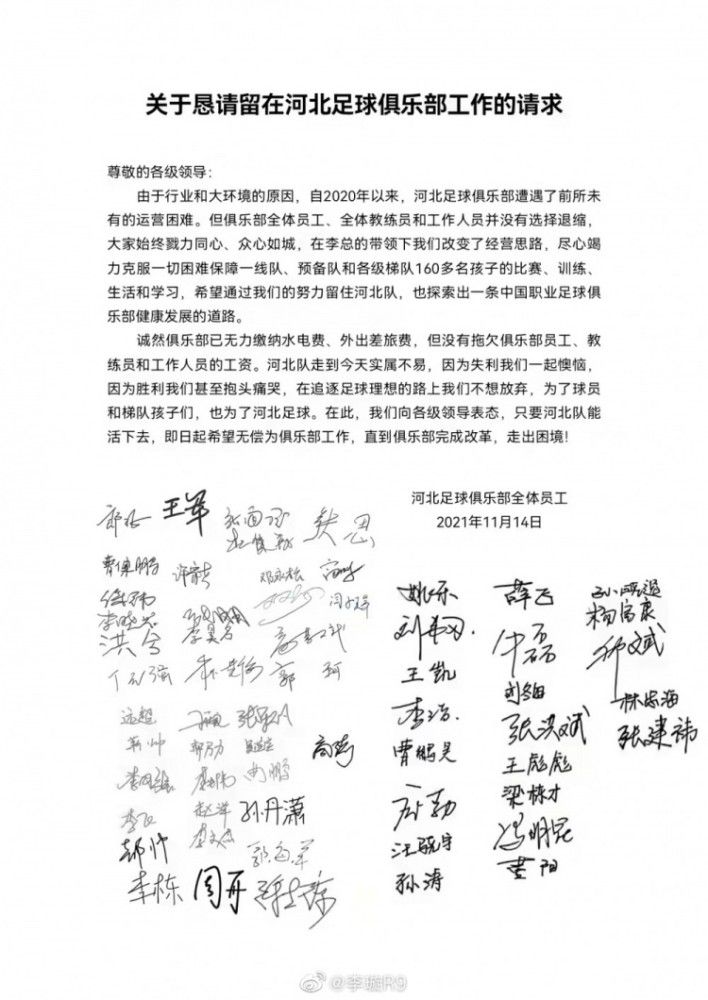 关于恳请留在河北足球俱乐部工作的请求
尊敬的各级领导：
由于行业和大环境的原因，自2020年以来，河北足球俱乐部遭遇了前所未
有的运营困难。但俱乐部全体员工、全体教练员和工作人员并没有选择退缩，
大家始终戮力同心、众心如城，在李总的带领下我们改变了经营思路，尽心竭
力克服一切困难保障一线队、预备队和各级梯队160多名孩子的比赛、训练、
生活和学习，希望通过我们的努力留住河北队，也探索出一条中国职业足球俱
乐部健康发展的道路。
诚然俱乐部已无力缴纳水电费、外出差旅费，但没有拖欠俱乐部员工、教
练员和工作人员的工资。河北队走到今天实属不易，因为失利我们一起懊恼，
因为胜利我们甚至抱头痛哭，在追逐足球理想的路上我们不想放弃，为了球员
和梯队孩子们，也为了河北足球。在此，我们向各级领导表态，只要河北队能
活下去，即日起希望无偿为俱乐部工作，直到俱乐部完成改革，走出困境！
河北足球俱乐部全体员工
2021年11月14日
王军
洪兮
郭珂
孙丹潇
李栋
周丹
姚乐
王凯
李浩
曹鹏昊
孙涛
薛飞
张洪斌
王彪彪
梁栋才
冯明昆
黄阳
杨富康
林志海
张建祎
@李璇R9